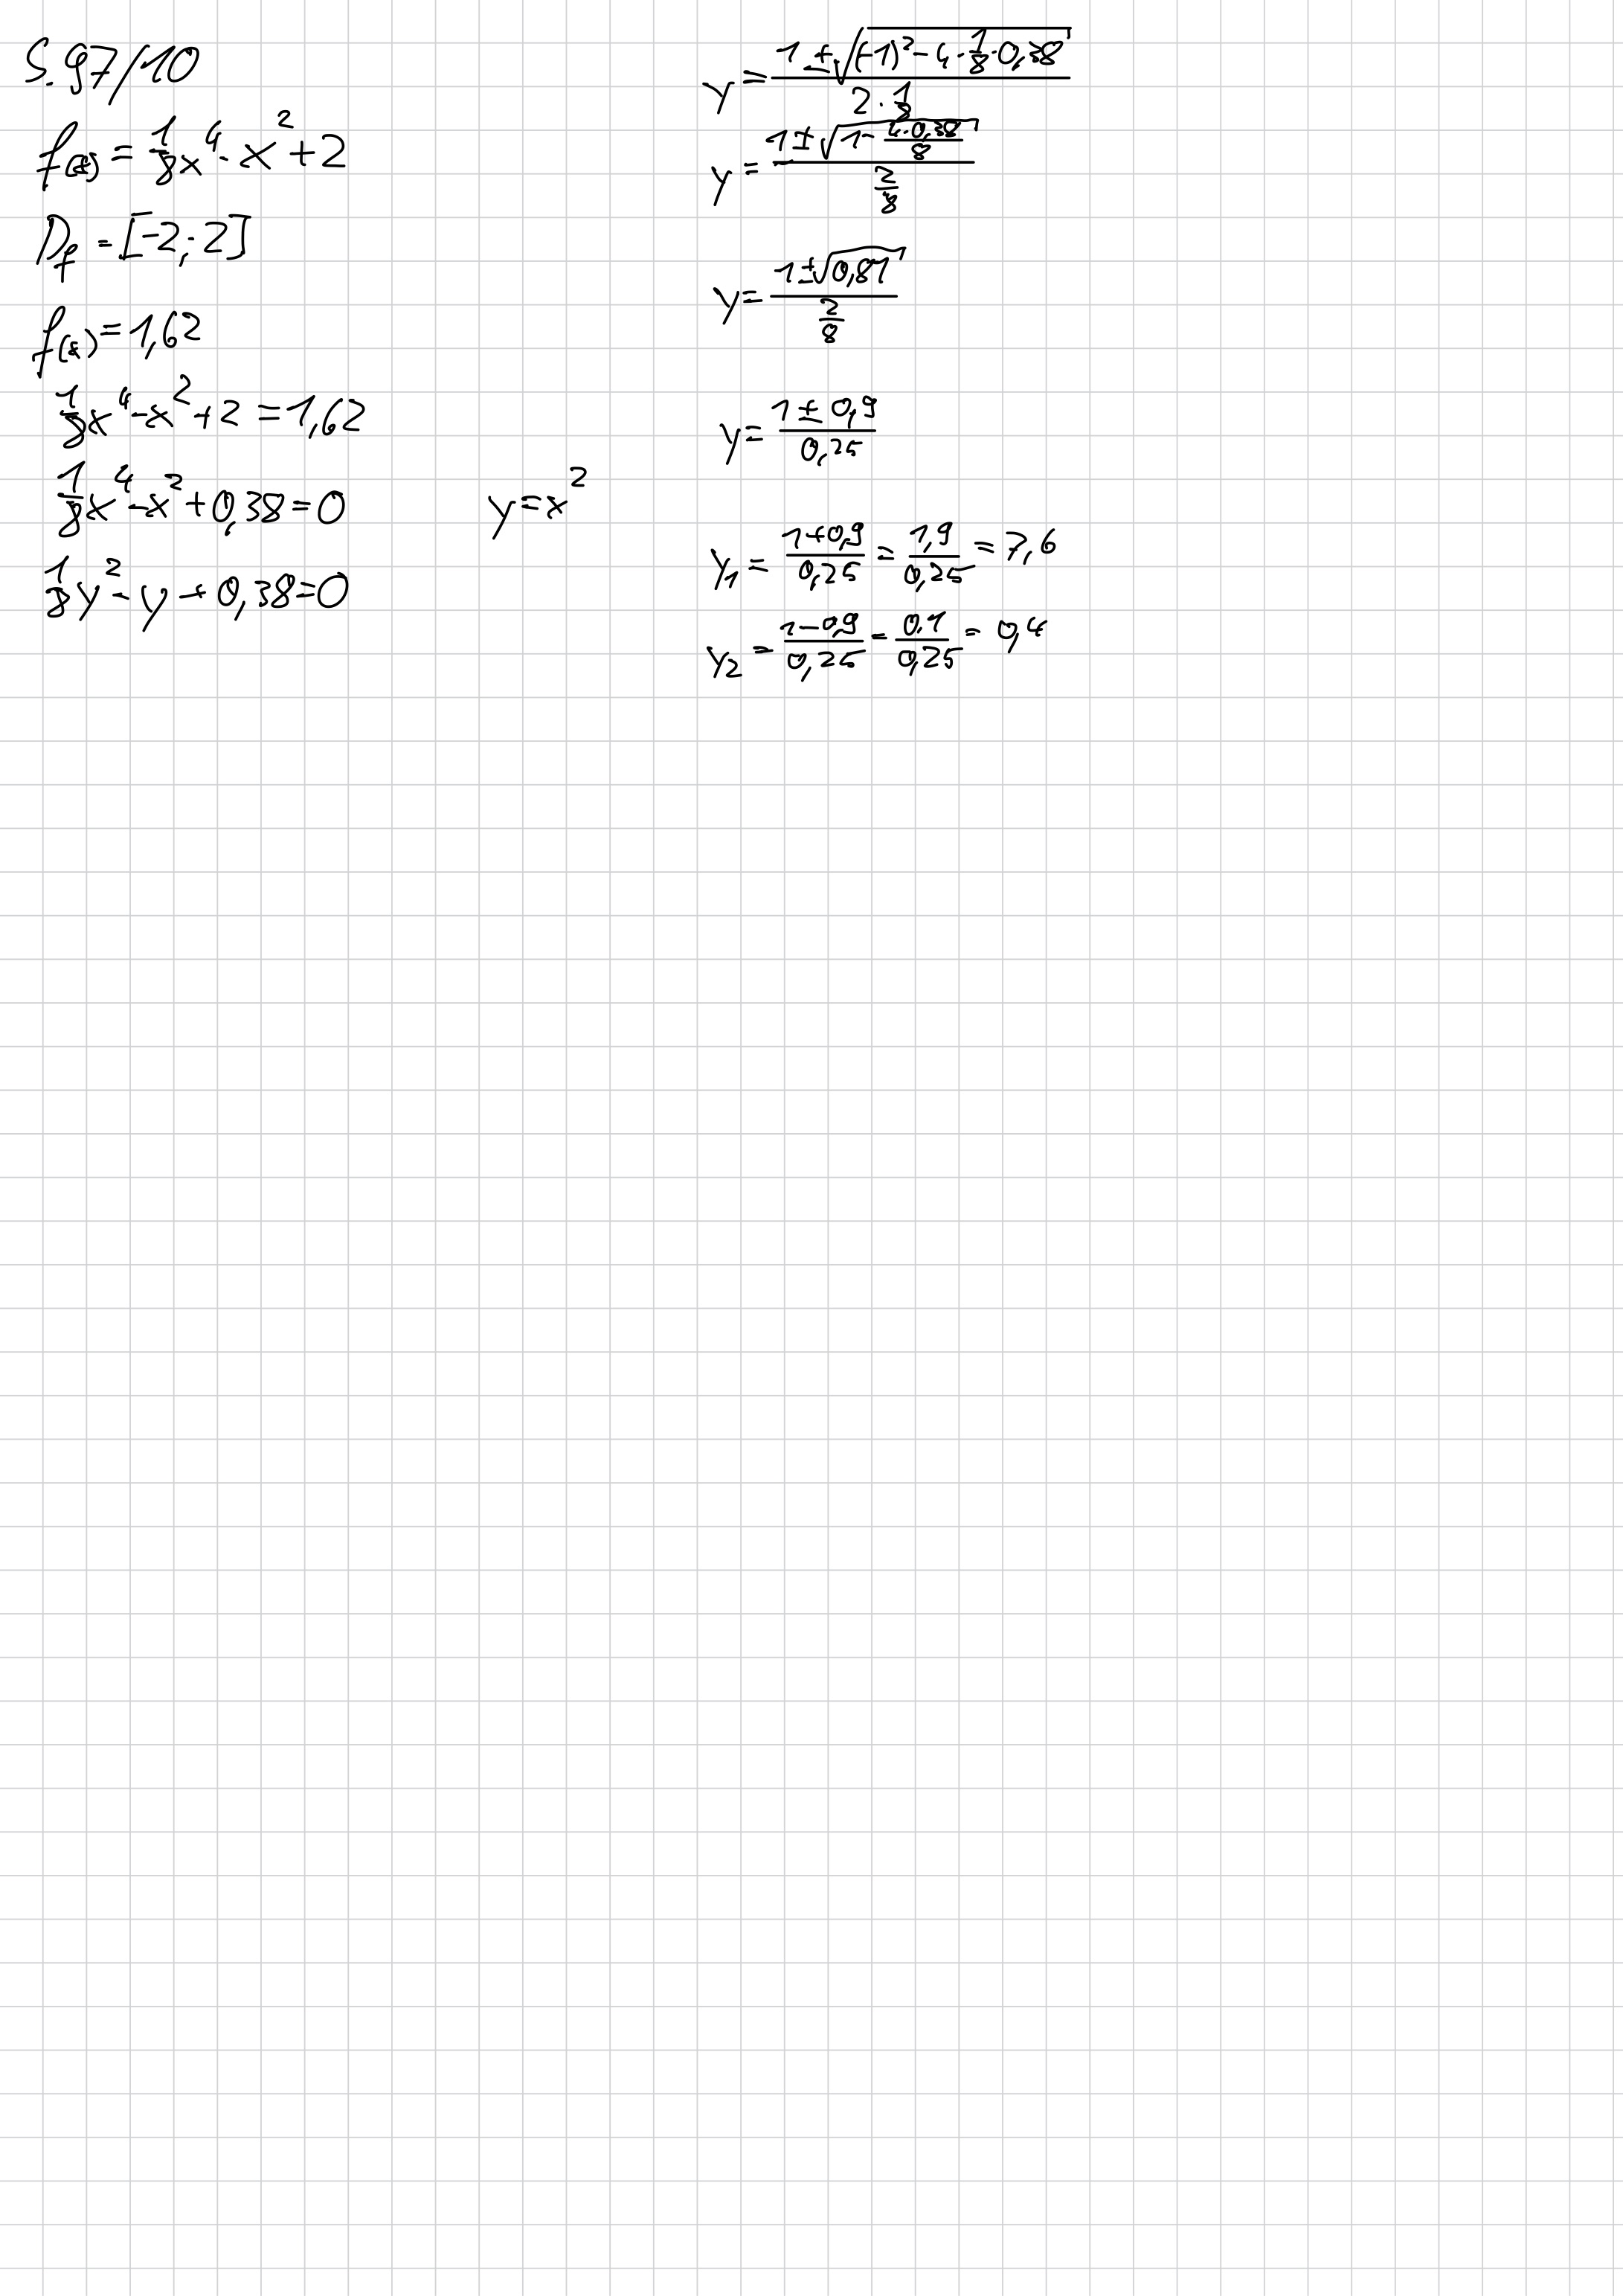 S. 97/10
f(x) = 1/8 x⁴ - x² + 2
D_f = [-2; 2]
f(x) = 1,62
1/8 x⁴ - x² + 2 = 1,62
1/8 x⁴ - x² + 0,38 = 0
y = x²
1/8 y² - y + 0,38 = 0
y = (1 ± √((-1)² - 4 · 1/8 · 0,38)) / (2 · 1/8)
y = (1 ± √(1 - (4 · 0,38)/8)) / (2/8)
y = (1 ± √(0,81)) / (2/8)
y = (1 ± 0,9) / 0,25
y₁ = (1+0,9)/0,25 = 1,9/0,25 = 7,6
y₂ = (1-0,9)/0,25 = 0,1/0,25 = 0,4